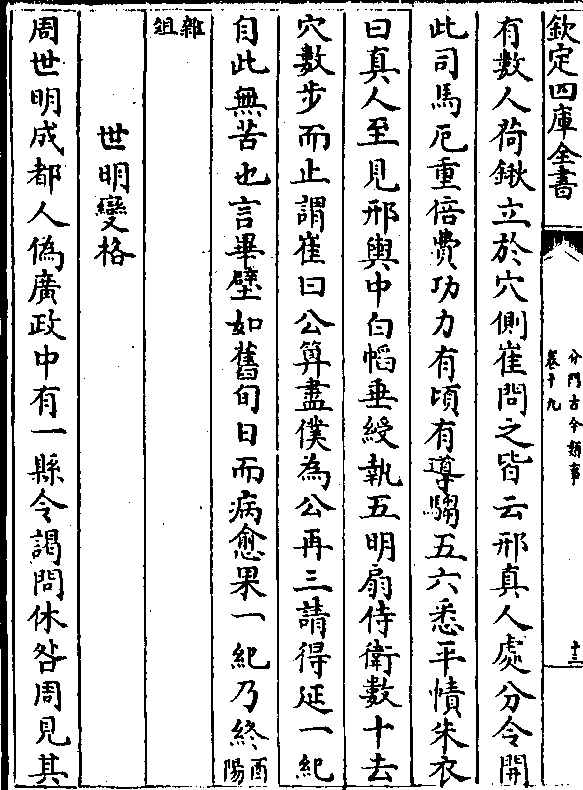 欽定四庫全書
分門古今類事
卷十九
十三
有數人荷鍬立於穴側崔問之皆云邢真人處分令開
此司馬厄重倍費功力有頃有導騶五六悉平幘朱衣
曰真人至見邢輿中白㡌垂綬執五明扇侍衛數十去
穴數步而止謂崔曰公算盡僕為公再三請得延一紀
自此無苦也言畢壁如舊旬日而病愈果一紀乃終酉陽
雜俎
世明變格
周世明成都人偽廣政中有一縣令謁問休咎周見其